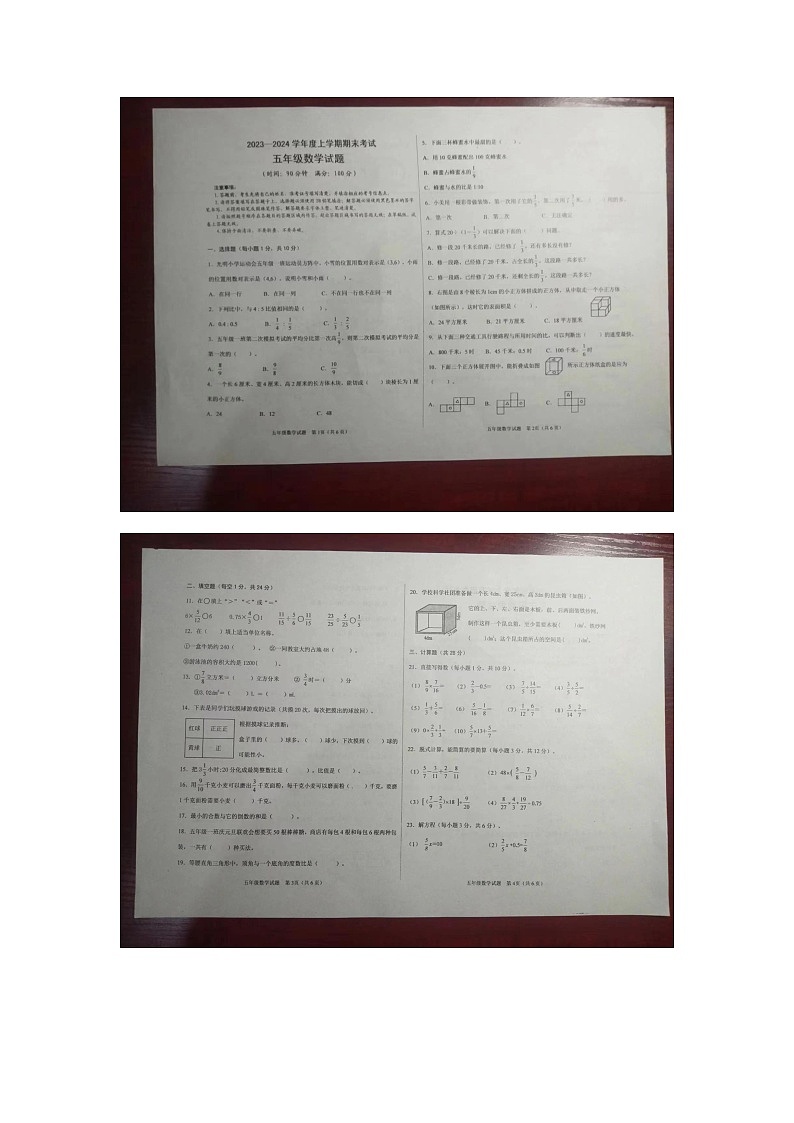 2023—2024 学年度上学期期末考试
五年级数学试题
（时间：90分钟 满分：100分）
注意事项：
一、选择题（每小题 1 分，共 10 分）
1．光明小学运动会五年级一班运动员方阵中，小雪的位置用数对表示是（3,6），小雨
的位置用数对表示是（4,6），说明小雪和小雨（ ）。
A．在同一行 B．在同一列 C．不在同一行也不在同一列
2．下列比中，与 4：5 比值相同的是（ ）。
A．0.4：0.5 B．1/4：1/5 C．1/3：2/5
3．五年级一班第二次模拟考试的平均分比第一次高1/9，则第二次模拟考试的平均分是
第一次的（ ）。
A．8/9 B．9/8 C．10/9
4．一个长 6 厘米，宽 4 厘米，高 2 厘米的长方体木块，能切成（ ）块棱长为 1 厘
米的小正方体。
A．24 B．12 C．48
五年级数学试题 第1页（共6页）
5．下面三杯蜂蜜水中最甜的是（ ）。
A．用 10 克蜂蜜配出 100 克蜂蜜水
B．蜂蜜占蜂蜜水的1/9
C．蜂蜜与水的比是 1:10
7．算式 20÷（1-1/3）可以解决下面的（ ）问题。
A．修一段 20 千米长的路，已经修了1/3，还有多长没有修？
B．修一段路，已经修了 20 千米，占全长的1/3，这段路一共多长？
C．修一段路，已经修了 20 千米，还剩全长的1/3，这段路一共多长？
8．右图是由 8 个棱长为 1cm 的小正方体拼成的正方体，从中取走一个小正方体
（如图所示），这时它的表面积是（ ）。
A．24 平方厘米 B．21 平方厘米 C．18 平方厘米
9．从下面三种交通工具行驶路程与所用时间的比，可以判断出（ ）的速度最快。
A．800 千米：5 时 B．45 千米：0.5 时 C．100 千米：1/6 时
10．下面三个正方体展开图中，能折叠成如图 所示正方体纸盒的是应为
（ ）。
A． B． C．
五年级数学试题 第2页（共6页）
二、填空题（每空 1 分，共 24 分）
11．在○填上“＞”“＜”或“＝”
6×5/12○6 0.75×4/3○1 11/15÷5/6○11/15 23/25÷5/23○1/5
12．在（ ）填上适当单位名称。
①一盒牛奶约 240（ ）。 ②一间教室大约占地 48（ ）。
③游泳池的容积大约是 1200（ ）。
13．①7/8立方米=（ ）立方分米 ②3/4时=（ ）分
③3.02dm³=（ ）L =（ ）mL
14．下表是同学们玩摸球游戏的记录（共摸 20 次，每次把摸出的球放回）。
红球 正正正
黄球 正
根据摸球记录推断：
盒子里的（ ）球多，（ ）球少，下次摸到（ ）球的
可能性小。
15．把 3 1/3小时：20 分化成最简整数比是（ ），比值是（ ）。
16．用9/10千克小麦可以磨出3/4千克面粉，每千克小麦可以磨面粉（ ）千克，要磨
1 千克面粉需要小麦（ ）千克。
17．最小的合数与它的倒数的和是（ ）。
18．五年级一班庆元旦联欢会想要买 50 根棒棒糖，商店有每包 4 根和每包 6 根两种包
装，一共有（ ）种买法。
19．等腰直角三角形中，顶角与一个底角的度数比是（ ）。
五年级数学试题 第3页（共6页）
20．学校科学社团准备做一个长 4dm，宽 25cm，高 2dm 的昆虫箱（如图）。
4dm
它的上、下、左、右面是木板，前、后两面装铁纱网。
制作这样一个昆虫箱，至少需要木板（ ）dm²，铁纱网
（ ）dm²；这个昆虫箱所占的空间是（ ）dm³。
三、计算题（共 28 分）
21．直接写得数（每小题 1 分，共 10 分）。
（1）8/9×7/16= （2）2/3-0.5= （3）7/5×14/15= （4）3/5÷5/2=
（5）1/3+5/6= （6）5/16÷1/8= （7）1/12×6/7= （8）5/14÷2/7=
（9）0×2/3+1/3= （10）5/7×13÷5/7=
22．脱式计算，能简算的要简算（每小题 3 分，共 12 分）。
（1）5/7-3/11+2/7-8/11 （2）48×(5/8-7/12)
（3）[(7/9-2/3)×18]÷9/20 （4）8/27×4/3+19/27÷0.75
23．解方程（每小题 3 分，共 6 分）。
（1）5/8x=10 （2）2/5x+0.5=7/8
五年级数学试题 第4页（共6页）